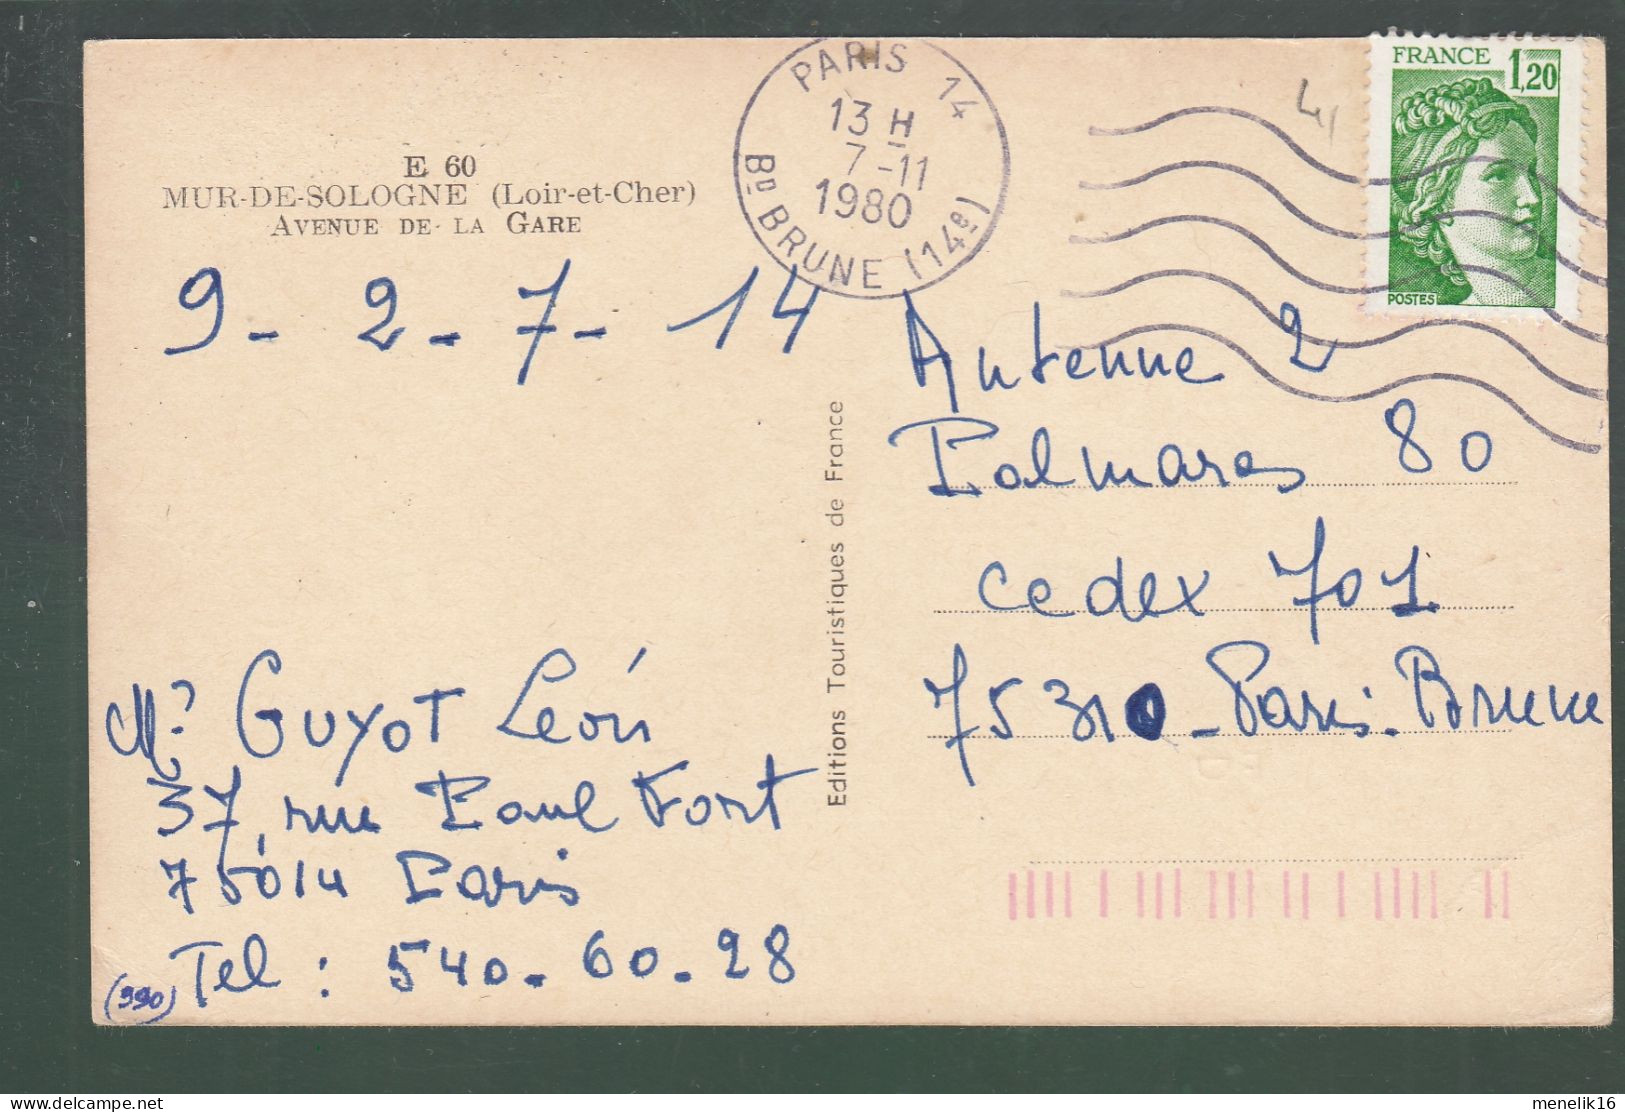 E 60
MUR-DE-SOLOGNE (Loir-et-Cher)
AVENUE DE LA GARE
PARIS 14
13 H
7-11
1980
BD BRUNE (14e)
41
FRANCE 1,20
POSTES
9 - 2 - 7 - 14
Antenne 2
Palmares 80
Cedex 701
75310 - Paris - Brune
Editions Touristiques de France
Mr GUYOT Léon
37, rue Paul Fort
75014 Paris
Tel : 540-60-28
(990)
delcampe.net
menelik16